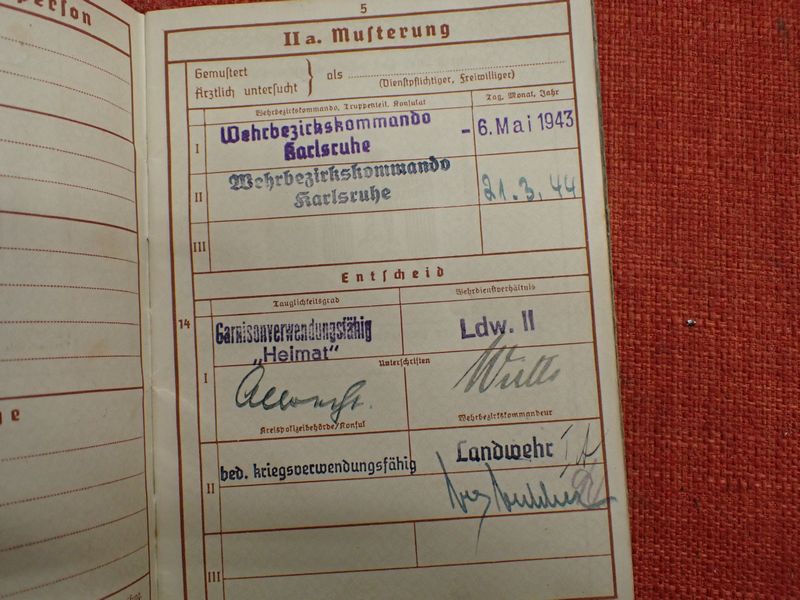 person
5
IIa. Musterung
Gemustert
Ärztlich untersucht } als
(Dienstpflichtiger, Freiwilliger)
Wehrbezirkskommando, Truppenteil, Konsulat
Tag, Monat, Jahr
I
Wehrbezirkskommando
Karlsruhe
- 6. Mai 1943
II
Wehrbezirkskommando
Karlsruhe
21.3.44
III
Entscheid
14
Tauglichkeitsgrad
Wehrdienstverhältnis
Garnisonverwendungsfähig
„Heimat"
Ldw. II
I
Unterschriften
Kreispolizeibehörde/Konsul
Wehrbezirkskommandeur
II
bed. kriegsverwendungsfähig
Landwehr
III